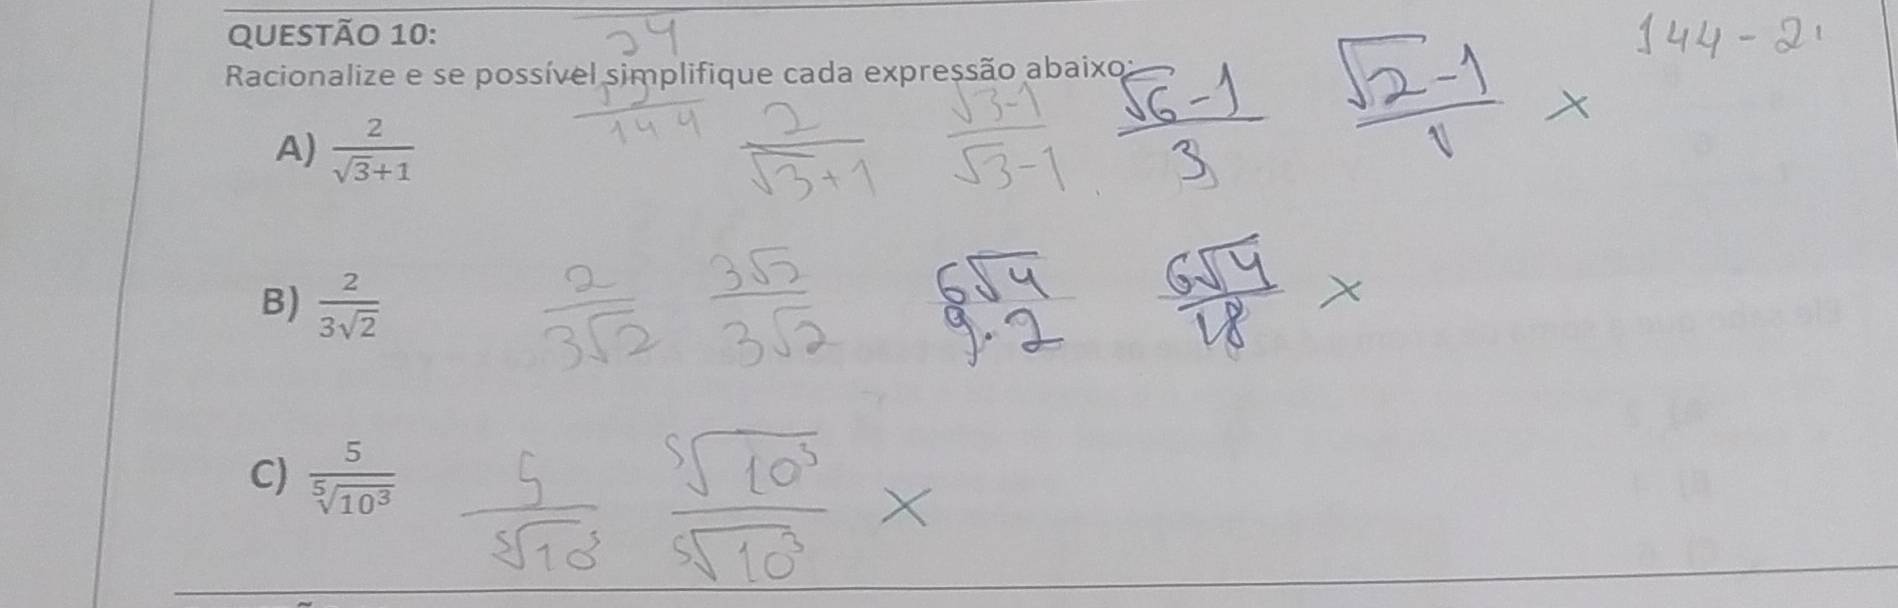 QUESTÃO 10:
24
144 - 2
Racionalize e se possível simplifique cada expressão abaixo:
144
A) 2/(√3+1) 2/(√3+1) (√3-1)/(√3-1) (√6-1)/3 (√2-1)/1 ×
B) 2/(3√2) 2/(3√2) (3√2)/(3√2) (6√4)/(9.2) (6√4)/18 ×
C) 5/⁵√10³ 5/⁵√10³ ⁵√10³/⁵√10³ ×